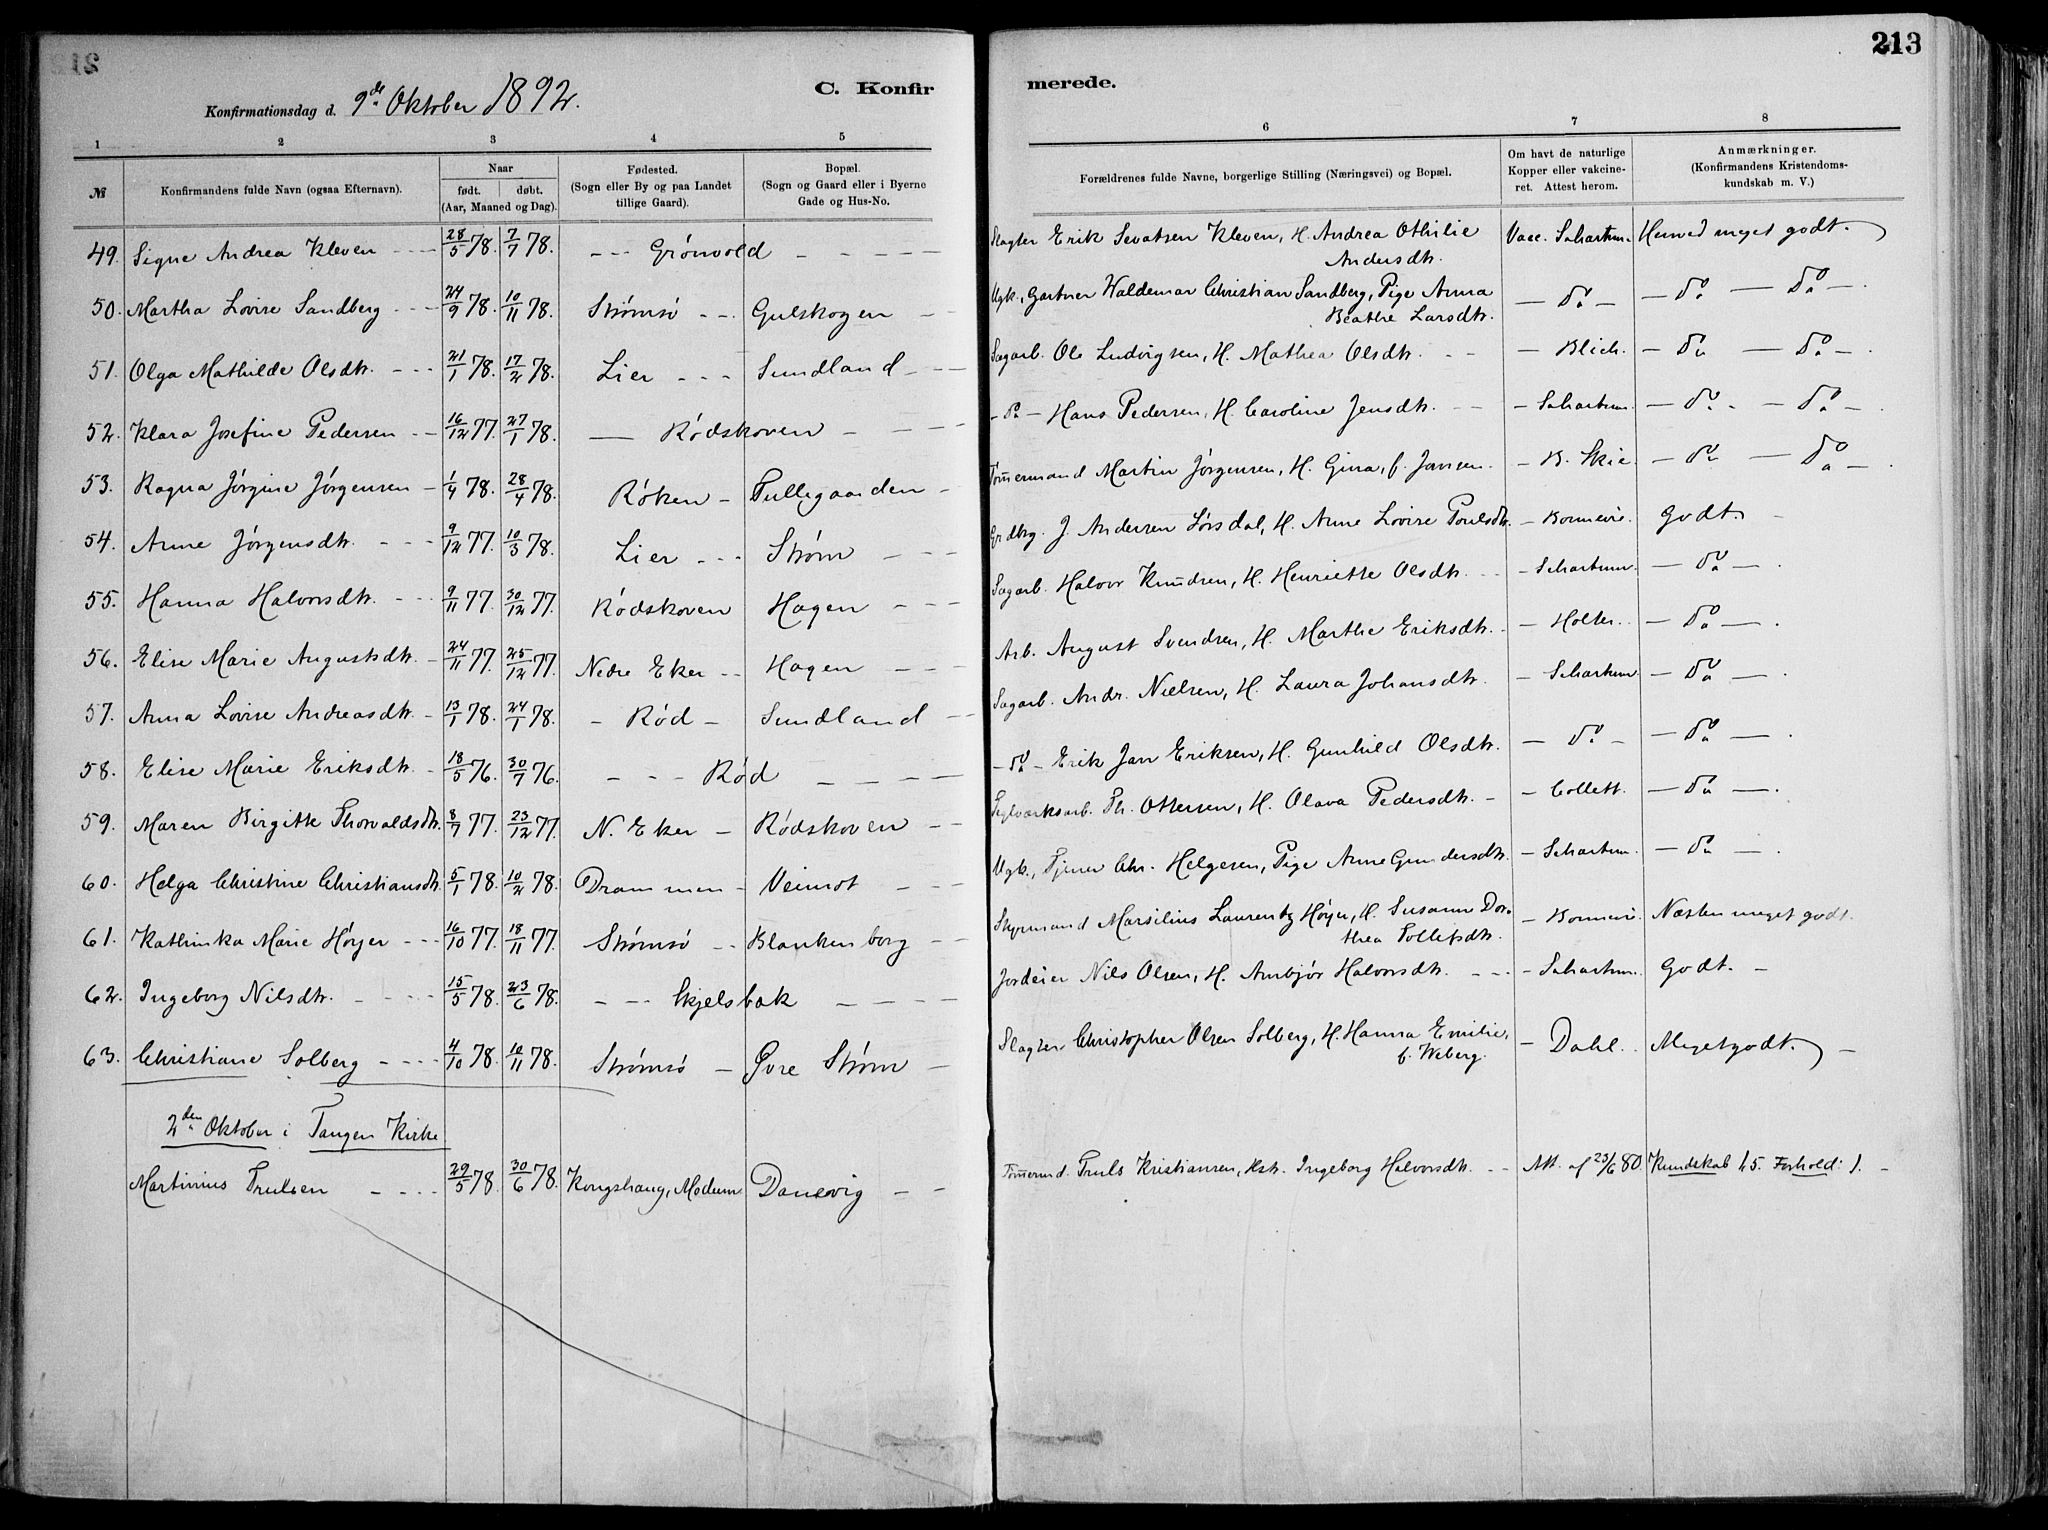 213
Konfirmationsdag d. 9de Oktober 1892.
C. Konfirmerede.
1 2 3 4 5 6 7 8
№ Konfirmandens fulde Navn (ogsaa Efternavn). Naar født. døbt. (Aar, Maaned og Dag). Fødested. (Sogn eller By og paa Landet tillige Gaard). Bopæl. (Sogn og Gaard eller i Byerne Gade og Hus-No. Forældrenes fulde Navne, borgerlige Stilling (Næringsvei) og Bopæl. Om havt de naturlige Kopper eller vakcineret. Attest herom. Anmærkninger. (Konfirmandens Kristendomskundskab m. V.)
49. Signe Andrea Kleven - - - 28/5 78. 7/7 78. - - - Grönvold - - - - - Slagter Erik Sevatsen Kleven, H. Andrea Othilie Andersdtr. Vacc. Schartum. Henved meget godt.
50. Martha Lovise Sandberg - - - 24/9 78. 10/11 78. Strömsö - - Gulskogen - - Ugk., Gartner Waldemar Christian Sandberg, Pige Anna Beathe Larsdtr. - do - - do - do -.
51. Olga Mathilde Olsdtr. - - - 21/1 78. 17/2 78. Lier - - - Sundland - - Sagarb. Ole Ludvigsen, H. Mathea Olsdtr. - - - Blich. - do - do -.
52. Klara Josefine Pedersen - - 16/12 77. 27/1 78. - Rödskoven - - - - - do - Hans Pedersen, H. Caroline Jensdtr. - - - Schartum. - do - - do -.
53. Ragna Jörgine Jörgensen - 1/4 78. 28/4 78. Röken - Tullegaarden - Tömermand Martin Jörgensen, H. Gina, f. Jansen. - B. Skie. - do - do -.
54. Anne Jörgensdtr. - - - 9/12 77. 10/3 78. Lier - - - Ström - - - Grdbrg. J. Andersen Lörsdal, H. Anne Lovise Poulsdtr. - Bonnevie. Godt. -
55. Hanna Halvorsdtr. - - - 9/11 77. 30/12 77. Rödskoven Hagen - - - Sagarb. Halvor Knudsen, H. Henriette Olsdtr. - - - Schartum. - do -.
56. Elise Marie Augustsdtr. - 24/11 77. 25/12 77. Nedre Eker - - Hagen - - - Arb. August Svendsen, H. Marthe Eriksdtr. - - Holter. - do -.
57. Anna Lovise Andreasdtr. - 13/1 78. 24/1 78. - Röd - Sundland - - Sagarb. Andr. Nielsen, H. Laura Johansdtr. - Schartum. - do -.
58. Elise Marie Eriksdtr. - 18/5 76. 30/7 76. - - - Röd - - - - - do - Erik Jan Eriksen, H. Gunhild Olsdtr. - do - - do -.
59. Maren Birgitte Thorvaldsdtr. 8/7 77. 23/12 77. N. Eker - Rödskoven - - Teglværksarb. Th. Ottersen, H. Olava Pedersdtr. - - Collett. - do -.
60. Helga Christine Christiansdtr. 5/1 78. 10/2 78. Drammen - Veimot - - - Ugk., Tjener Chr. Helgesen, Pige Anne Gundersdtr. - Schartum. - do -.
61. Kathinka Marie Höyer - - - 16/10 77. 18/11 77. Strömsö - - Blankenborg - - Styrmand Marsilius Laurentz Höyer, H. Susanne Dorthea Tollefsdtr. - Bonnevie. Næsten meget godt.
62. Ingeborg Nilsdtr. - - - - 15/5 78. 23/6 78. - - - Skjelsbæk - - - - Jordeier Nils Olsen, H. Anbjör Halvorsdtr. - - - - Schartum. Godt. -
63. Christiane Solberg - - - - 4/10 78. 10/11 78. Strömsö - Övre Ström - Slagter Christopher Olsen Solberg, H. Hanna Emilie, f. Weberg. - Dahl. Meget godt. -
2den Oktober i Tangen Kirke
Martinius Trulsen - - - - 29/5 78. 30/6 78. Kongshaug, Modum. Danevig - - Tömermd. Truls Kristiansen, Kst. Ingeborg Halvorsdtr. - - Att. af 23/6 80. Kundskab 2,5. Forhold: 1. -